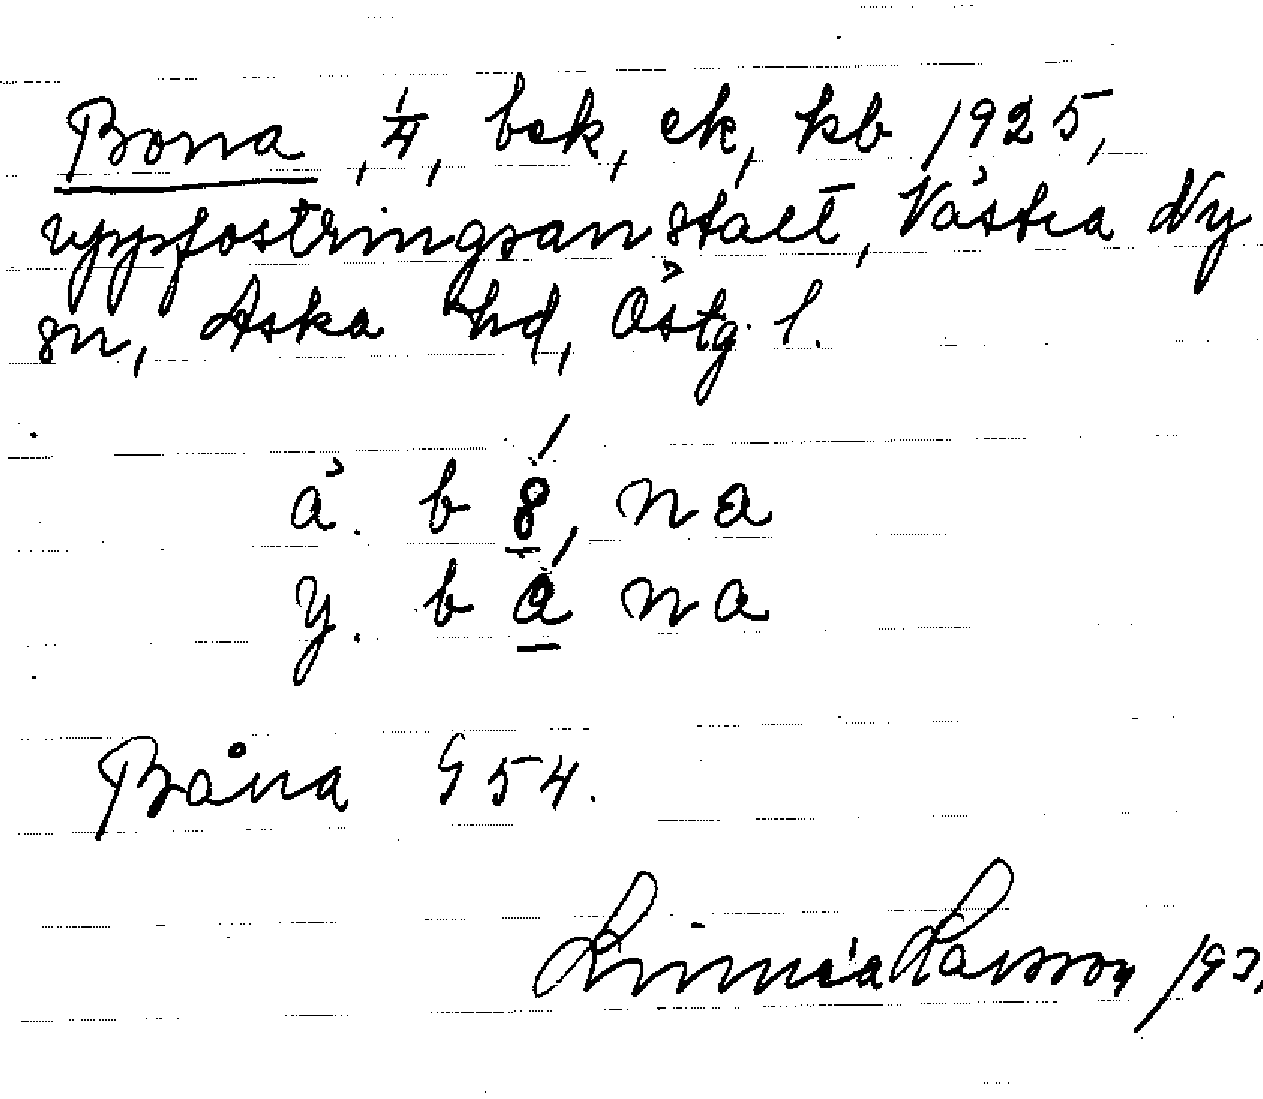 Bona, 1/4, bek, ek, kb 1925,
uppfostringsanstalt, Västra Ny
sn, Aska hd, Östg. l.
ä. b 8, na
y. b å na
Båna G 54.
Linnéa Larsson